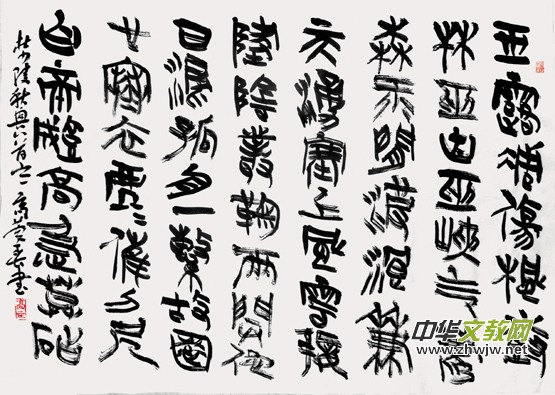 玉露凋傷楓樹
林巫山巫峽气蕭
森江間波浪兼
天涌塞上風雲接
墬陰叢鞠兩開他
日淚孤舟一繫故園
心寒衣處〻催刀尺
白帝城高急暮砧
杜少陵秋興八首之一 書
中华文教网
www.zhwjw.net